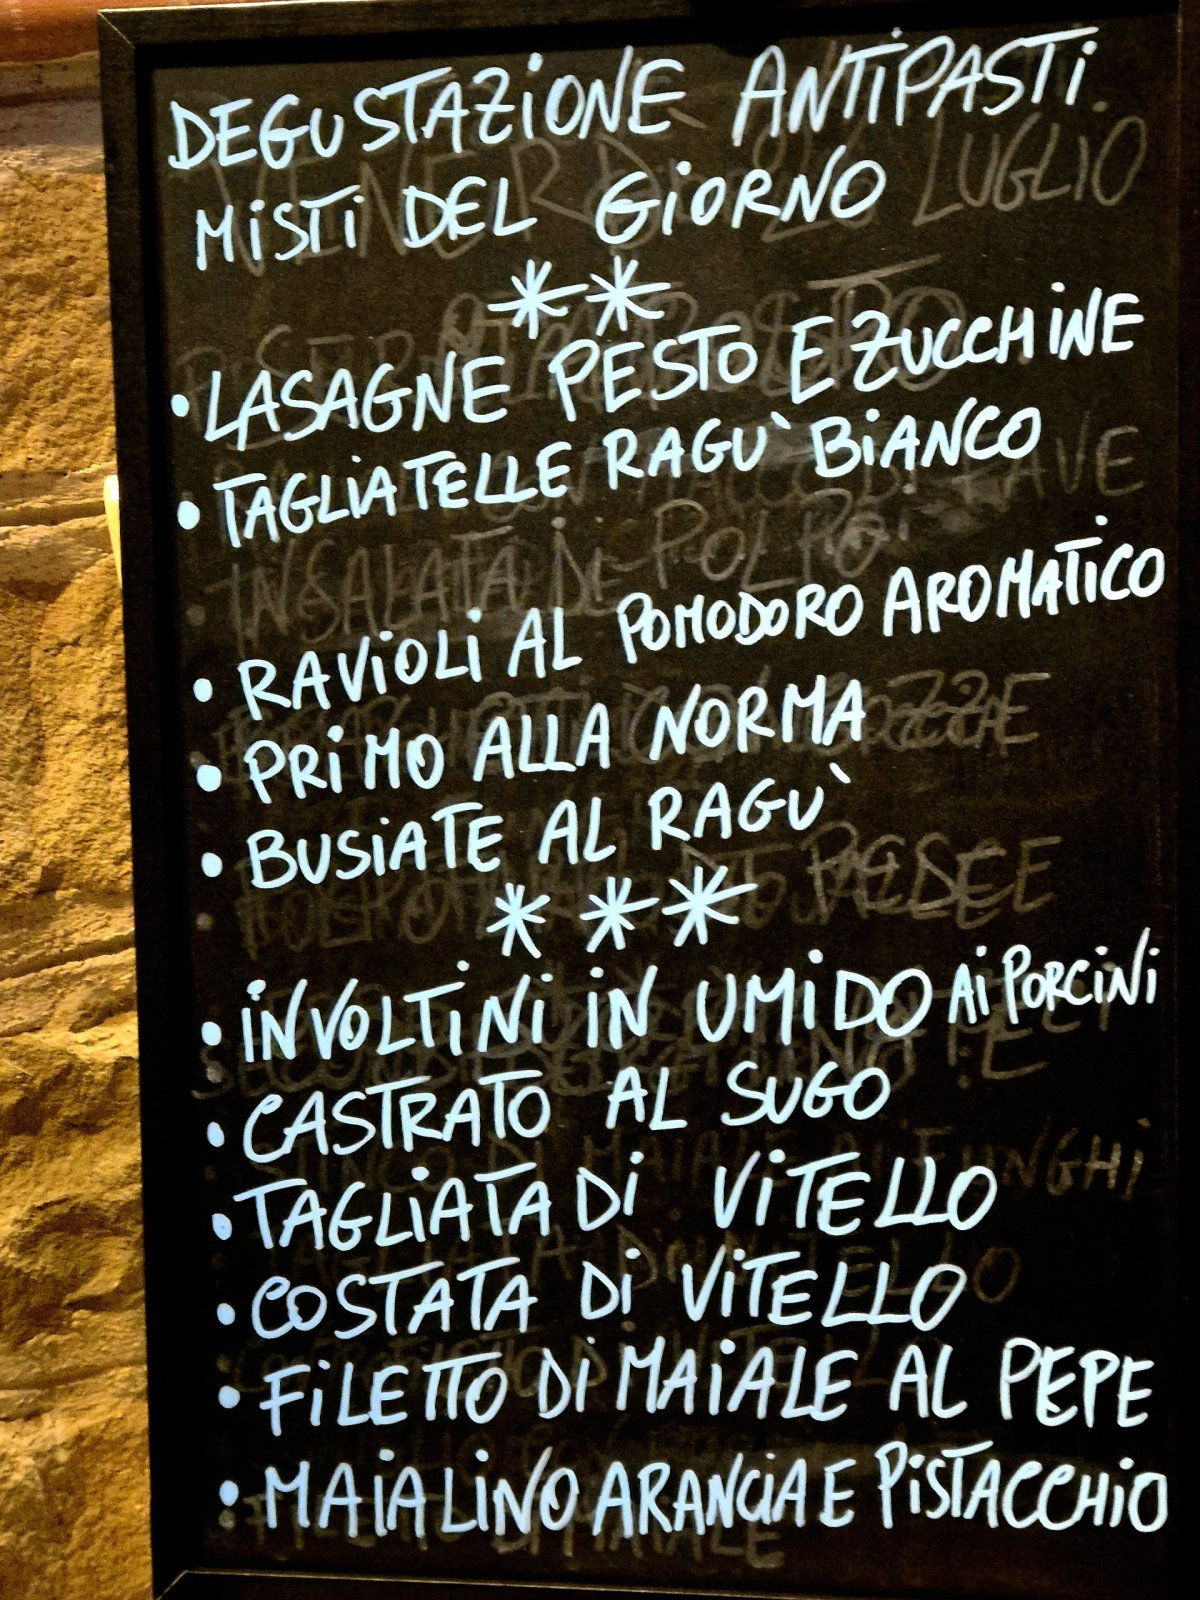 DEGUSTAZIONE ANTIPASTI
MISTI DEL GIORNO
**
• LASAGNE PESTO E ZUCCHINE
• TAGLIATELLE RAGU` BIANCO
• RAVIOLI AL POMODORO AROMATICO
• PRIMO ALLA NORMA
• BUSIATE AL RAGU`
***
• INVOLTINI IN UMIDO AI PORCINI
• CASTRATO AL SUGO
• TAGLIATA DI VITELLO
• COSTATA DI VITELLO
• FILETTO DI MAIALE AL PEPE
• MAIALINO ARANCIA E PISTACCHIO